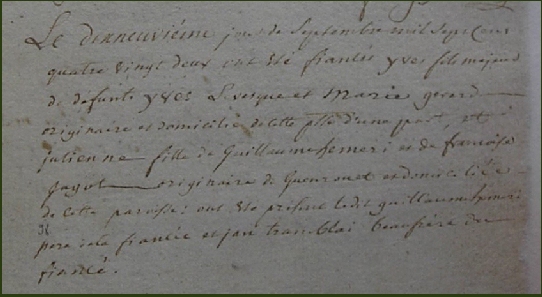 Le dixneuvième jour de Septembre mil Sept Cent
quatre vingt deux ont été fiancés yves fils majeur
de defunts yves Levesque et Marie gerard
originaire et domicilié de cette psse d'une part, et
julienne fille de Guillaume hemeri et de francoise
gayot originaire de Guenronet et domiciliée
de cette paroisse : ont été present ledit guillaume hemeri
pere de la fiancée et jan tramblai beaufrère du
fiancé.